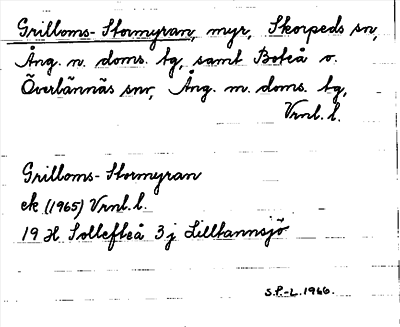 Grilloms-Stormyran, myr, Skorpeds sn,
Ång. n. doms. tg, samt Boteå o.
Överlännäs snr, Ång. m. doms. tg,
Vrnl. l.
Grilloms-Stormyran
ek (1965) Vrnl. l.
19 H Sollefteå 3 j Lilltannsjö
S.P.-L. 1966.